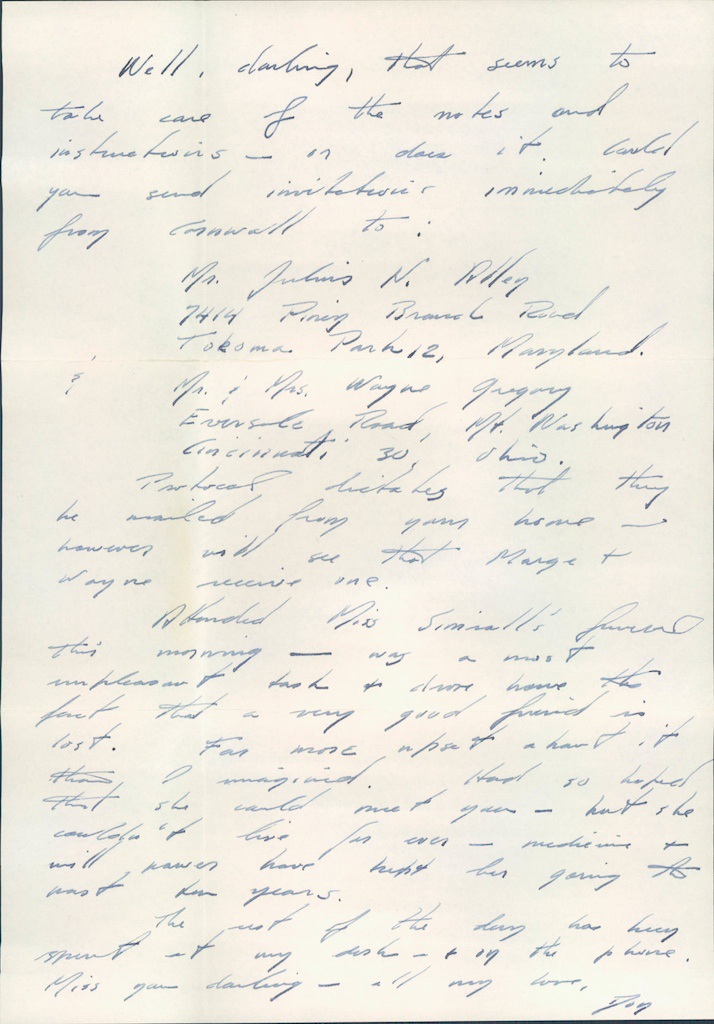 Well, darling, that seems to
take care of the notes and
instructions — or does it. Could
you send invitations immediately
from Cornwall to:
Mr. Julius N. Adley
7414 Piney Branch Road
Takoma Park 12, Maryland.
& Mr. & Mrs. Wayne Gregory
Eversole Road, Mt. Washington
Cincinnati 30, Ohio.
Protocol dictates that they
be mailed from your home —
however will see that Marge &
Wayne receive one.
Attended Miss Simrall's funeral
this morning — was a most
unpleasant task & drove home the
fact that a very good friend is
lost. Far more upset about it
than I imagined. Had so hoped
that she could meet you — but she
couldn't live for ever — medicine &
will power have kept her going the
past ten years.
The rest of the day has been
spent at my desk — & on the phone.
Miss you darling — all my love,
Don